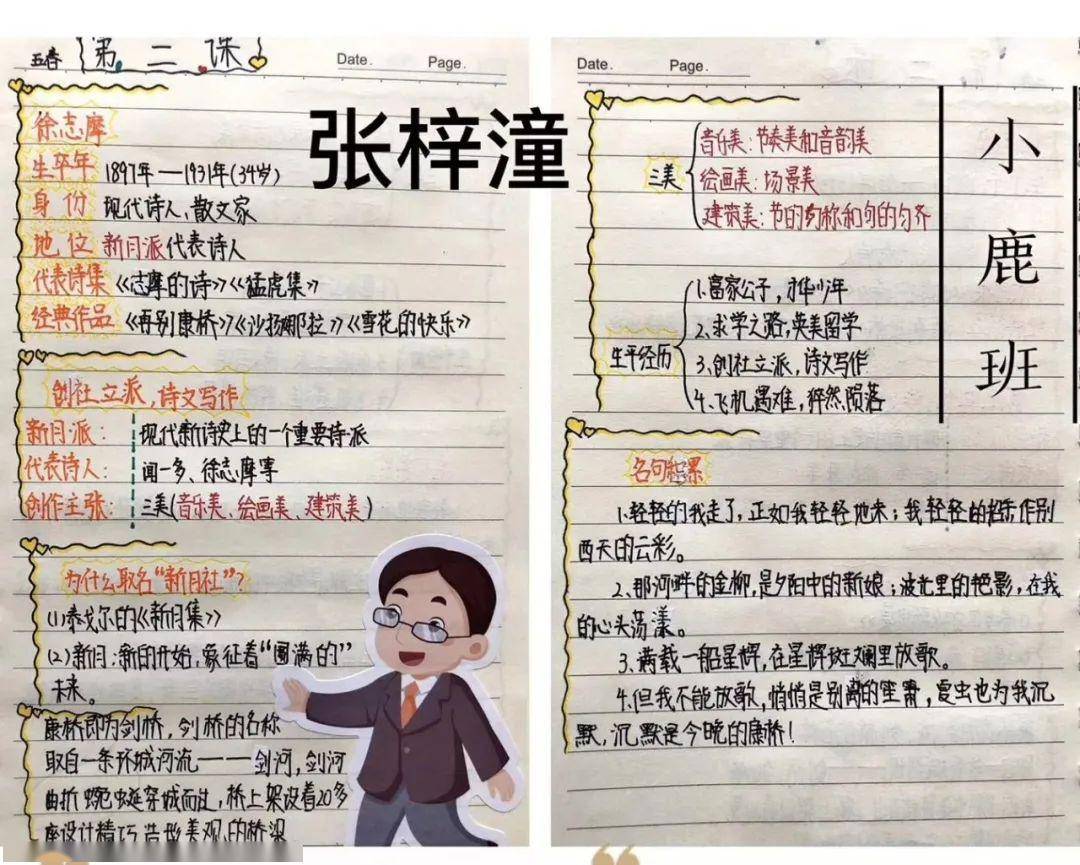 五春 第二课
Date. Page.
张梓潼
徐志摩
生卒年 1897年—1931年(34岁)
身份 现代诗人、散文家
地位 新月派代表诗人
代表诗集《志摩的诗》《猛虎集》
经典作品《再别康桥》《沙扬娜拉》《雪花的快乐》
创社立派,诗文写作
新月派: 现代新诗史上的一个重要诗派
代表诗人: 闻一多、徐志摩等
创作主张: 三美(音乐美、绘画美、建筑美)
为什么取名“新月社”?
(1)泰戈尔的《新月集》
(2)新月:新的开始,象征着“圆满的”
未来。
康桥即为剑桥,剑桥的名称
取自一条环城河流——剑河,剑河
曲折蜿蜒穿城而过,桥上架设着20多
座设计精巧造型美观的桥梁
Date. Page.
小鹿班
三美
音乐美:节奏美和音韵美
绘画美:场景美
建筑美:节的匀称和句的匀齐
生平经历
1.富家公子,才华少年
2.求学之路,英美留学
3.创社立派,诗文写作
4.飞机遇难,猝然陨落
名句积累
1.轻轻的我走了,正如我轻轻地来;我轻轻的招手作别
西天的云彩。
2.那河畔的金柳,是夕阳中的新娘;波光里的艳影,在我
的心头荡漾。
3.满载一船星辉,在星辉斑斓里放歌。
4.但我不能放歌,悄悄是别离的笙箫,夏虫也为我沉
默,沉默是今晚的康桥!